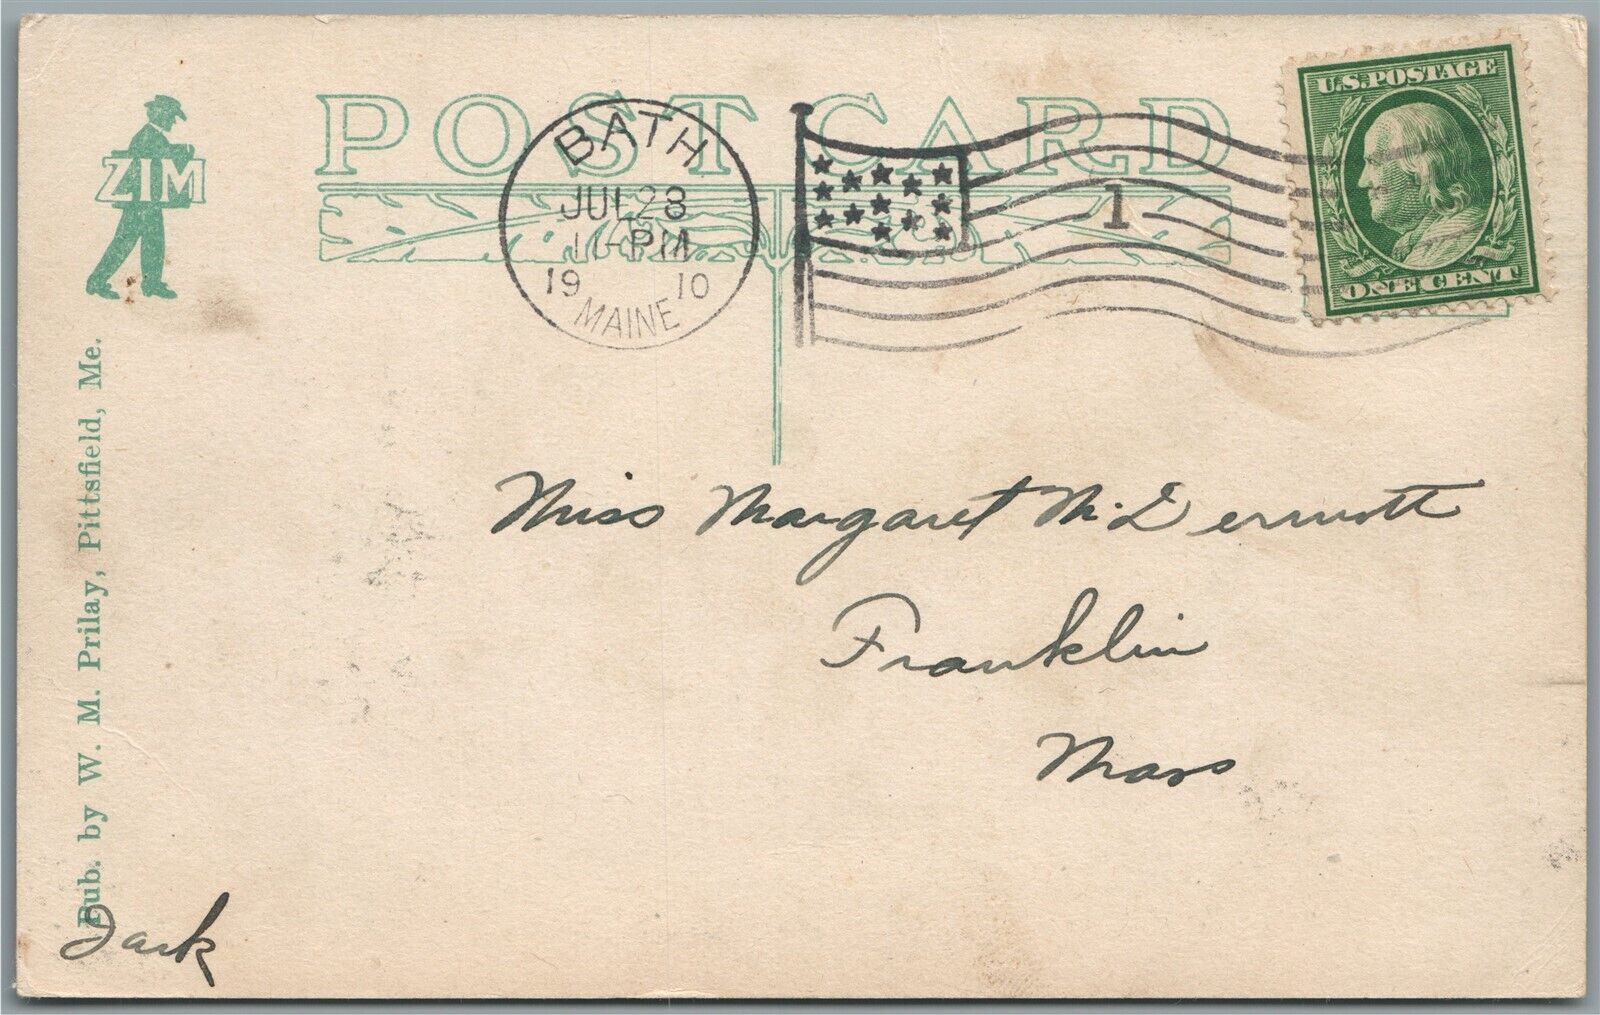 POST CARD
ZIM
BATH
JUL 28
11-PM
19 10
MAINE
1
U.S. POSTAGE
ONE CENT
Pub. by W. M. Prilay, Pittsfield, Me.
Miss Margaret McDermott
Franklin
Mass